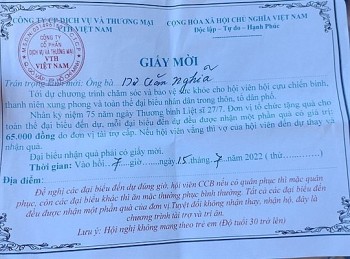 CÔNG TY CP DỊCH VỤ VÀ THƯƠNG MẠI
VTH VIỆT NAM
CỘNG HÒA XÃ HỘI CHỦ NGHĨA VIỆT NAM
Độc lập - Tự do - Hạnh Phúc
CÔNG TY
CỔ PHẦN
DỊCH VỤ VÀ THƯƠNG MẠI
VTH
VIỆT NAM
GIẤY MỜI
Trân trọng kính mời: Ông bà
Tới dự chương trình chăm sóc và bảo vệ sức khỏe cho hội viên hội cựu chiến binh,
thanh niên xung phong và toàn thể đại biểu nhân dân trong thôn, tổ dân phố.
Nhân kỷ niệm 75 năm ngày Thương binh Liệt sĩ 27/7. Đơn vị tổ chức tặng quà cho
toàn thể đại biểu đến dự, mỗi đại biểu đến dự đều được nhận một phần quà có giá trị:
65.000 đồng do đơn vị tài trợ cấp. Nếu hội viên vắng thì vợ của hội viên đến dự thay và
nhận quà.
Đại biểu nhận quà phải có giấy mời.
Thời gian: Vào hồi...7...giờ......ngày 15 tháng 7 năm 2022 (thứ...............)
Địa điểm:
Đề nghị các đại biểu đến dự đúng giờ, hội viên CCB nếu có quân phục thì mặc quân
phục, còn các đại biểu khác thì ăn mặc thường phục bình thường. Tất cả các đại biểu đến
đều được nhận một phần quà của đơn vị Tuyệt đối không nhận thay, nhận hộ, đây là
chương trình tài trợ và tri ân.
Lưu ý: Hội nghị không mang theo trẻ em (Độ tuổi 30 trở lên)